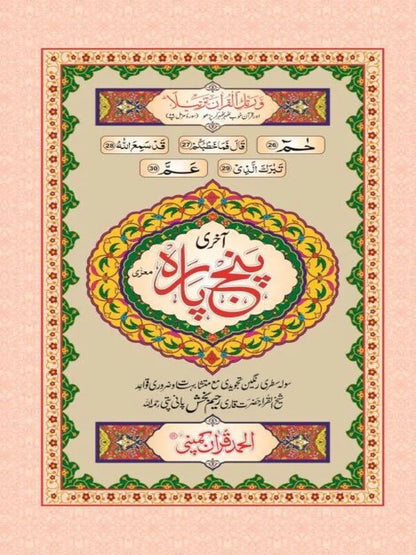 وَرَتِّلِ الْقُرْاٰنَ تَرْتِیْلًا
اور قرآن خوب ٹھہر ٹھہر کر پڑھو (سورۃ مزمل)
حٰمٓ 26 قَالَ فَمَا خَطْبُكُمْ 27 قَدْ سَمِعَ اللّٰهُ 28
تَبٰرَكَ الَّذِیْ 29 عَمَّ 30
آخری
پنج پارہ
معرٰی
سولہ سطری رنگین تجویدی مع متشابہات و ضروری قواعد
شیخ القراء حضرت قاری رحیم بخش پانی پتی رحمہ اللہ
الحمد قرآن کمپنی